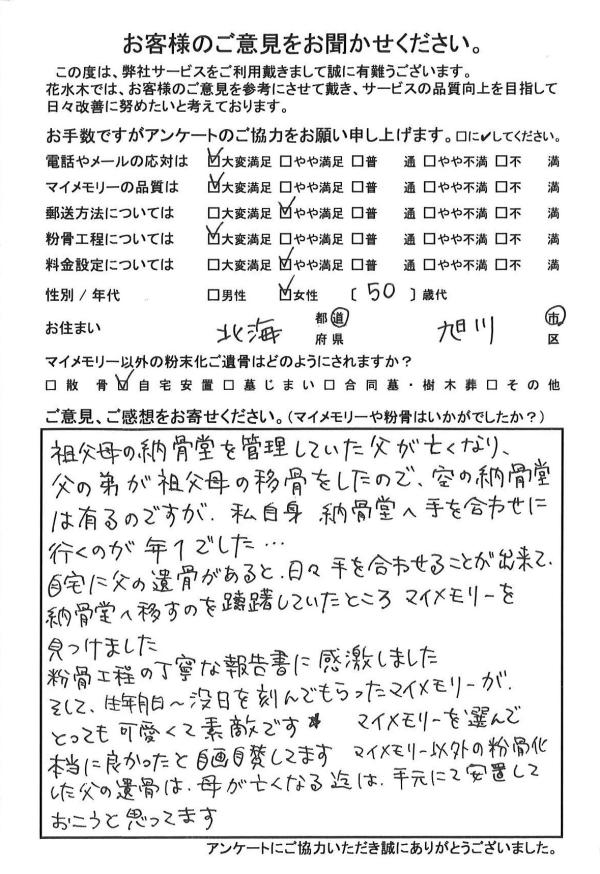 お客様のご意見をお聞かせください。
この度は、弊社サービスをご利用戴きまして誠に有難うございます。
花水木では、お客様のご意見を参考にさせて戴き、サービスの品質向上を目指して
日々改善に努めたいと考えております。
お手数ですがアンケートのご協力をお願い申し上げます。□に✔してください。
電話やメールの応対は ☑大変満足 □やや満足 □普 通 □やや不満 □不 満
マイメモリーの品質は ☑大変満足 □やや満足 □普 通 □やや不満 □不 満
郵送方法については □大変満足 ☑やや満足 □普 通 □やや不満 □不 満
粉骨工程については ☑大変満足 □やや満足 □普 通 □やや不満 □不 満
料金設定については □大変満足 ☑やや満足 □普 通 □やや不満 □不 満
性別 / 年代 □男性 ☑女性 〔 50 〕歳代
お住まい 北海 都道府県 旭川 市区
マイメモリー以外の粉末化ご遺骨はどのようにされますか？
□散 骨 ☑自宅安置 □墓じまい □合同墓・樹木葬 □その他
ご意見、ご感想をお寄せください。(マイメモリーや粉骨はいかがでしたか？)
祖父母の納骨堂を管理していた父が亡くなり、
父の弟が祖父母の移骨をしたので、空の納骨堂
は有るのですが、私自身 納骨堂へ手を合わせに
行くのが年1でした…
自宅に父の遺骨があると、日々手を合わせることが出来て、
納骨堂へ移すのを躊躇していたところ マイメモリーを
見つけました
粉骨工程の丁寧な報告書に感激しました
そして、生年月日～没日を刻んでもらったマイメモリーが、
とっても可愛くて素敵です★ マイメモリーを選んで
本当に良かったと自画自賛してます マイメモリー以外の粉骨化
した父の遺骨は、母が亡くなる迄は、手元にて安置して
おこうと思ってます
アンケートにご協力いただき誠にありがとうございました。